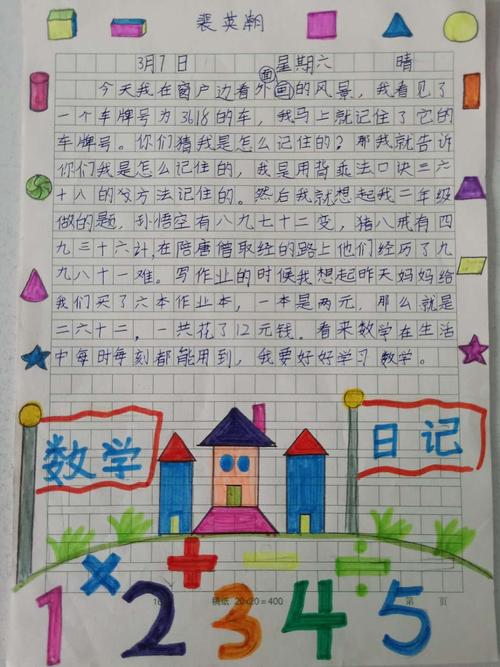 裴英潮
3月7日 星期六 晴
今天我在窗户边看外面的风景，我看见了
一个车牌号为3618的车，我马上就记住了它的
车牌号。你们猜我是怎么记住的？那我就告诉
你们我是怎么记住的，我是用背乘法口诀三六
十八的方法记住的。然后我就想起我二年级
做的题，孙悟空有八九七十二变，猪八戒有四
九三十六计，在陪唐僧取经的路上他们经历了九
九八十一难。写作业的时候我想起昨天妈妈给
我们买了六本作业本，一本是两元，那么就是
二六十二，一共花了12元钱。看来数学在生活
中每时每刻都能用到，我要好好学习数学。
数学 日记
× + − ÷
稿纸 20×20=400 第 页
1 2 3 4 5